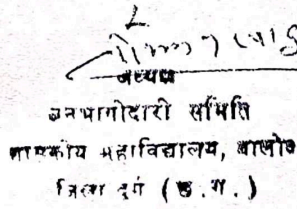 अध्यक्ष
जनभागीदारी समिति
शासकीय महाविद्यालय,
जिला दुर्ग (छ.ग.)